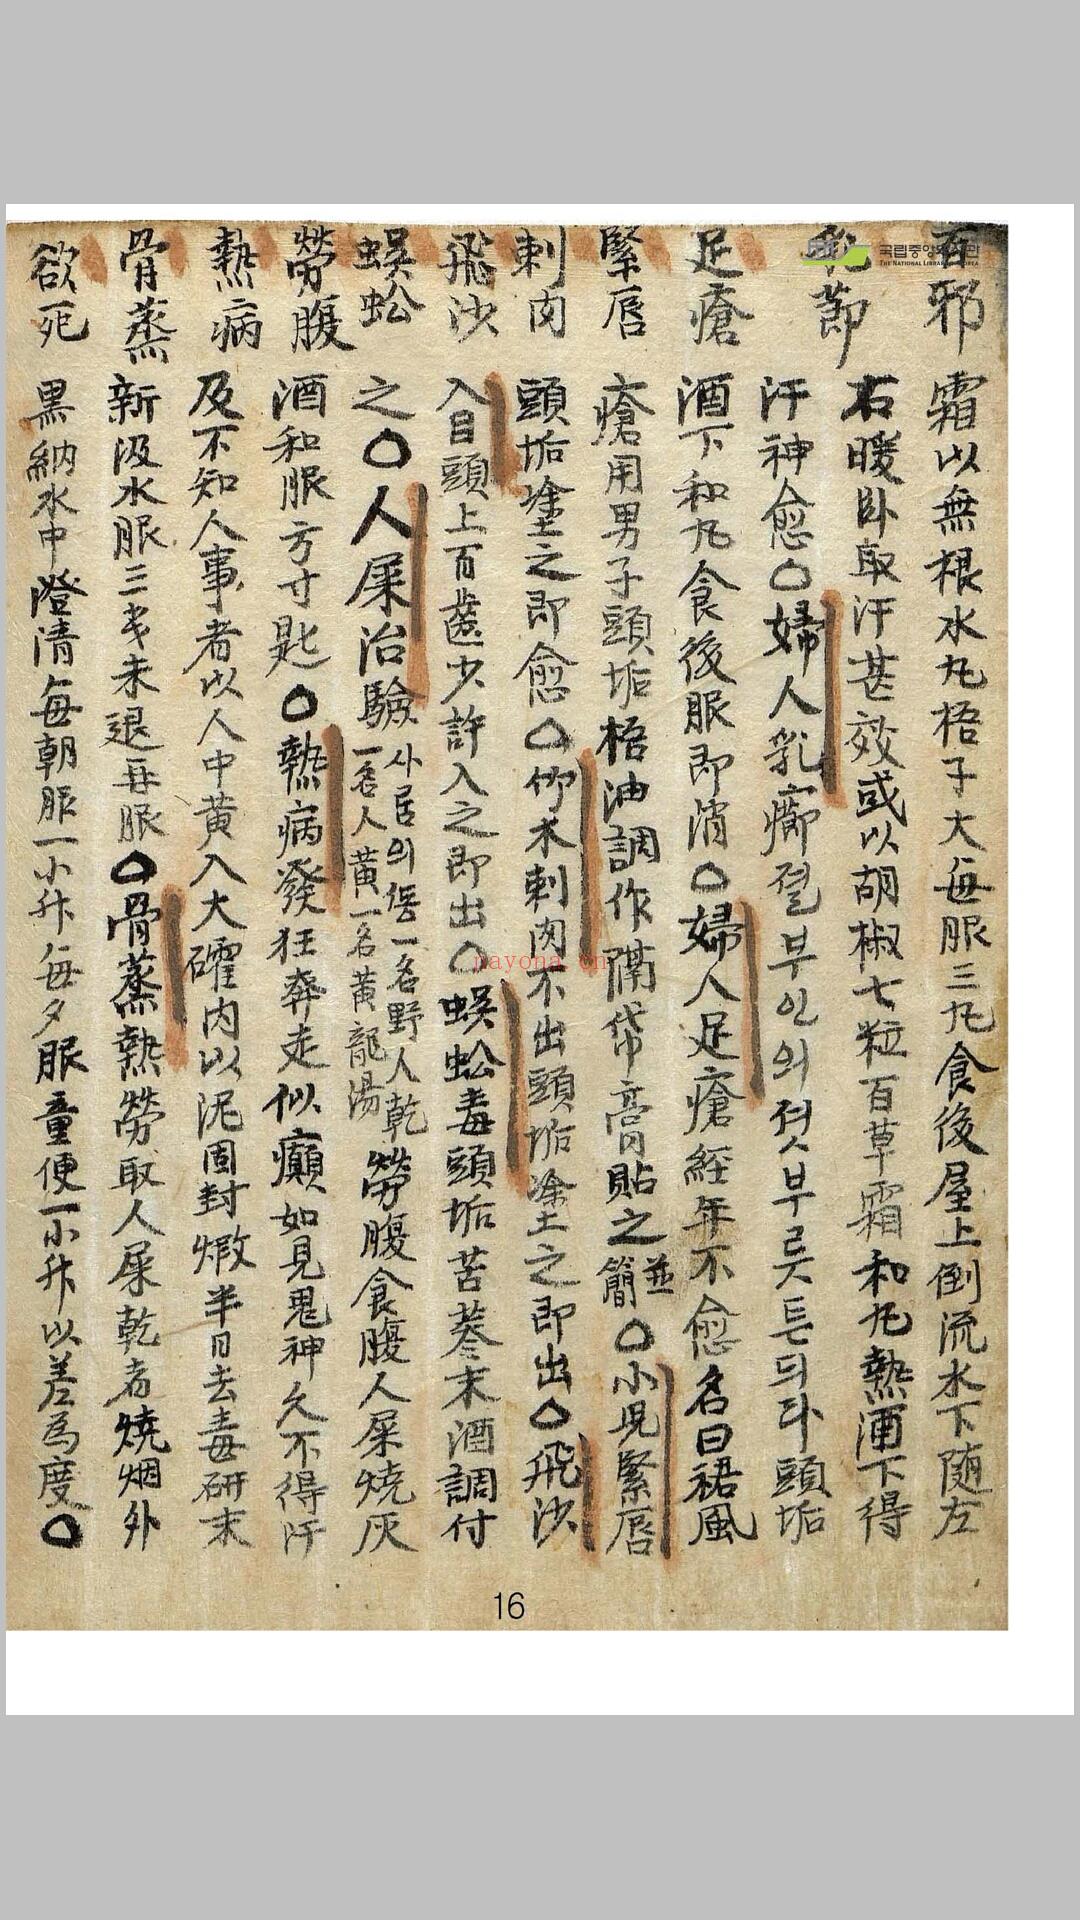 邪
乳節
足瘡
緊唇
刺肉
飛沙
蜈蚣
勞腹
熱病
骨蒸
欲死
국립중앙도서관
THE NATIONAL LIBRARY OF KOREA
霜以無根水丸梧子大每服三丸食後屋上倒流水下随左
右暖臥取汗甚效或以胡椒七粒百草霜和丸熱酒下得
汗神愈〇婦人乳癤졀부인의젓부룻튼듸라頭垢
酒下和丸食後服即消〇婦人足瘡經年不愈名曰裙風
瘡用男子頭垢梧油調作隔帋膏貼之並簡〇小児緊唇
頭垢塗之即愈〇竹木刺肉不出頭垢塗之即出〇飛沙
入目頭上百齒少許入之即出〇蜈蚣毒頭垢苦蔘末酒調付
之〇人屎治驗사람의一名野人乾一名人黃一名黃龍湯勞腹食腹人屎燒灰
酒和服方寸匙〇熱病發狂奔走似癲如見鬼神久不得汗
及不知人事者以人中黃入大礶內以泥固封煆半日去毒研末
新汲水服三戔未退再服〇骨蒸熱勞取人屎乾者燒烟外
黒納水中澄清每朝服一小升每夕服童便一小升以差為度〇
16
nayona.cn